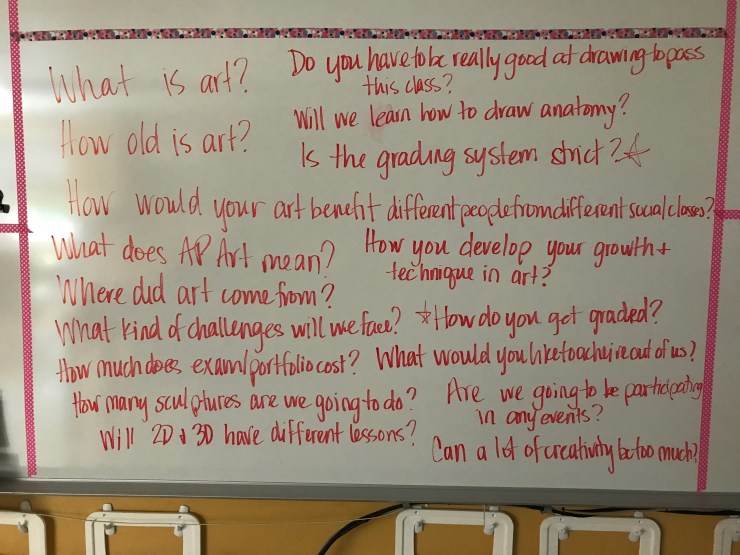 What is art?
Do you have to be really good at drawing to pass
this class?
How old is art?
Will we learn how to draw anatomy?
Is the grading system strict? ☆
How would your art benefit different people from different social classes?
What does AP Art mean?
How you develop your growth +
technique in art?
Where did art come from?
What kind of challenges will we face?
☆ How do you get graded?
How much does exam/portfolio cost?
What would you like to achieve out of us?
How many sculptures are we going to do?
Are we going to be participating
in any events?
Will 2D & 3D have different lessons?
Can a lot of creativity be too much?